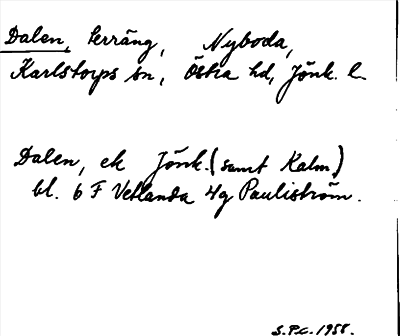 Dalen, terräng, Nyboda,
Karlstorps sn, Östra hd, Jönk. l.
Dalen, ek Jönk. (samt Kalm)
bl. 6 F Vetlanda 4g Pauliström.
S.P.C. 1958.